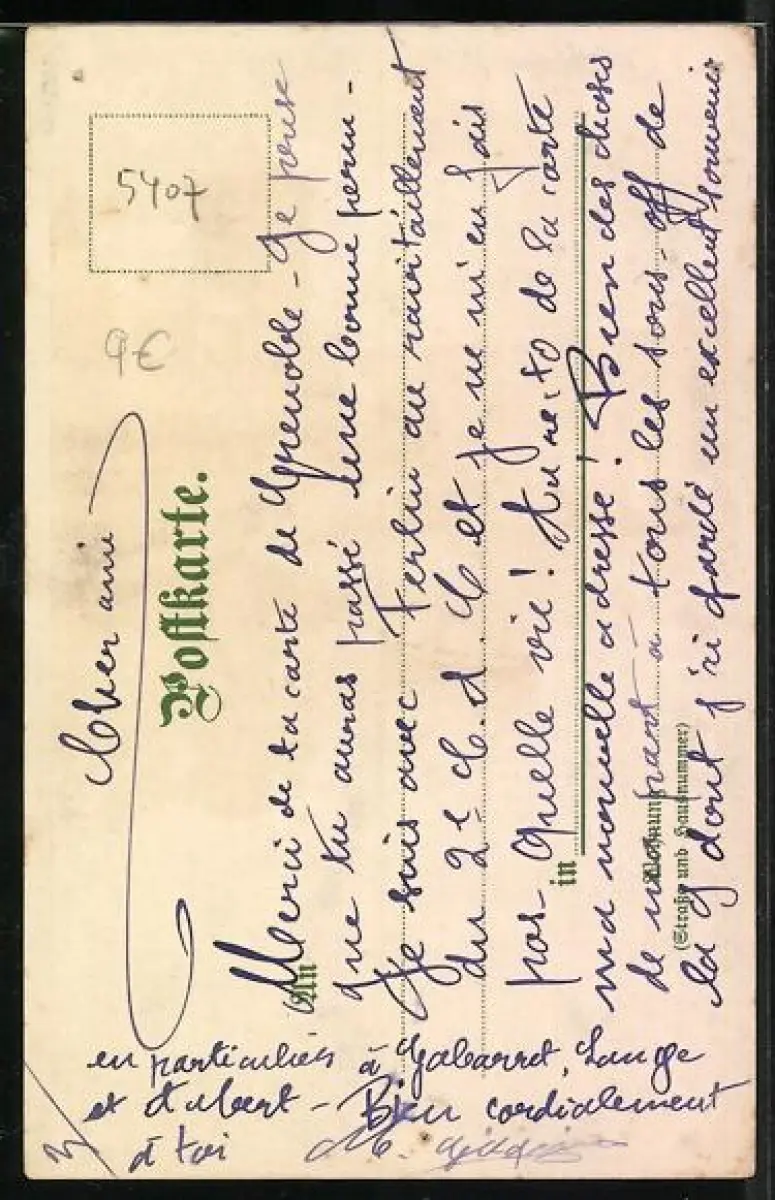 5407
9€
Postkarte.
Cher ami
Merci de ta carte de Grenoble - Je pense
que tu auras passé une bonne perm -
Je suis avec Ferlin au ravitaillement
du 2e C.A.C et je ne m'en fais
pas - Quelle vie! Au verso de la carte
ma nouvelle adresse! Bien des choses
de ma part à tous les sous-off de
la 9 dont j'ai gardé un excellent souvenir
en particulier à Gabarret, Lange
et Aubert - Bien cordialement
à toi
M.
An
in
Wohnung
(Straße und Hausnummer)